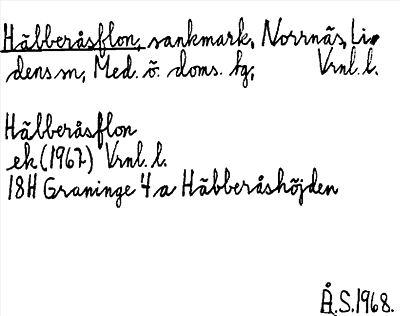 Häbberåsflon, sankmark, Norrnäs, Li-
dens sn, Med. ö. doms. tg, Vrnl. l.
Häbberåsflon
ek (1967) Vrnl. l.
18H Graninge 4a Häbberåshöjden
Å.S. 1968.